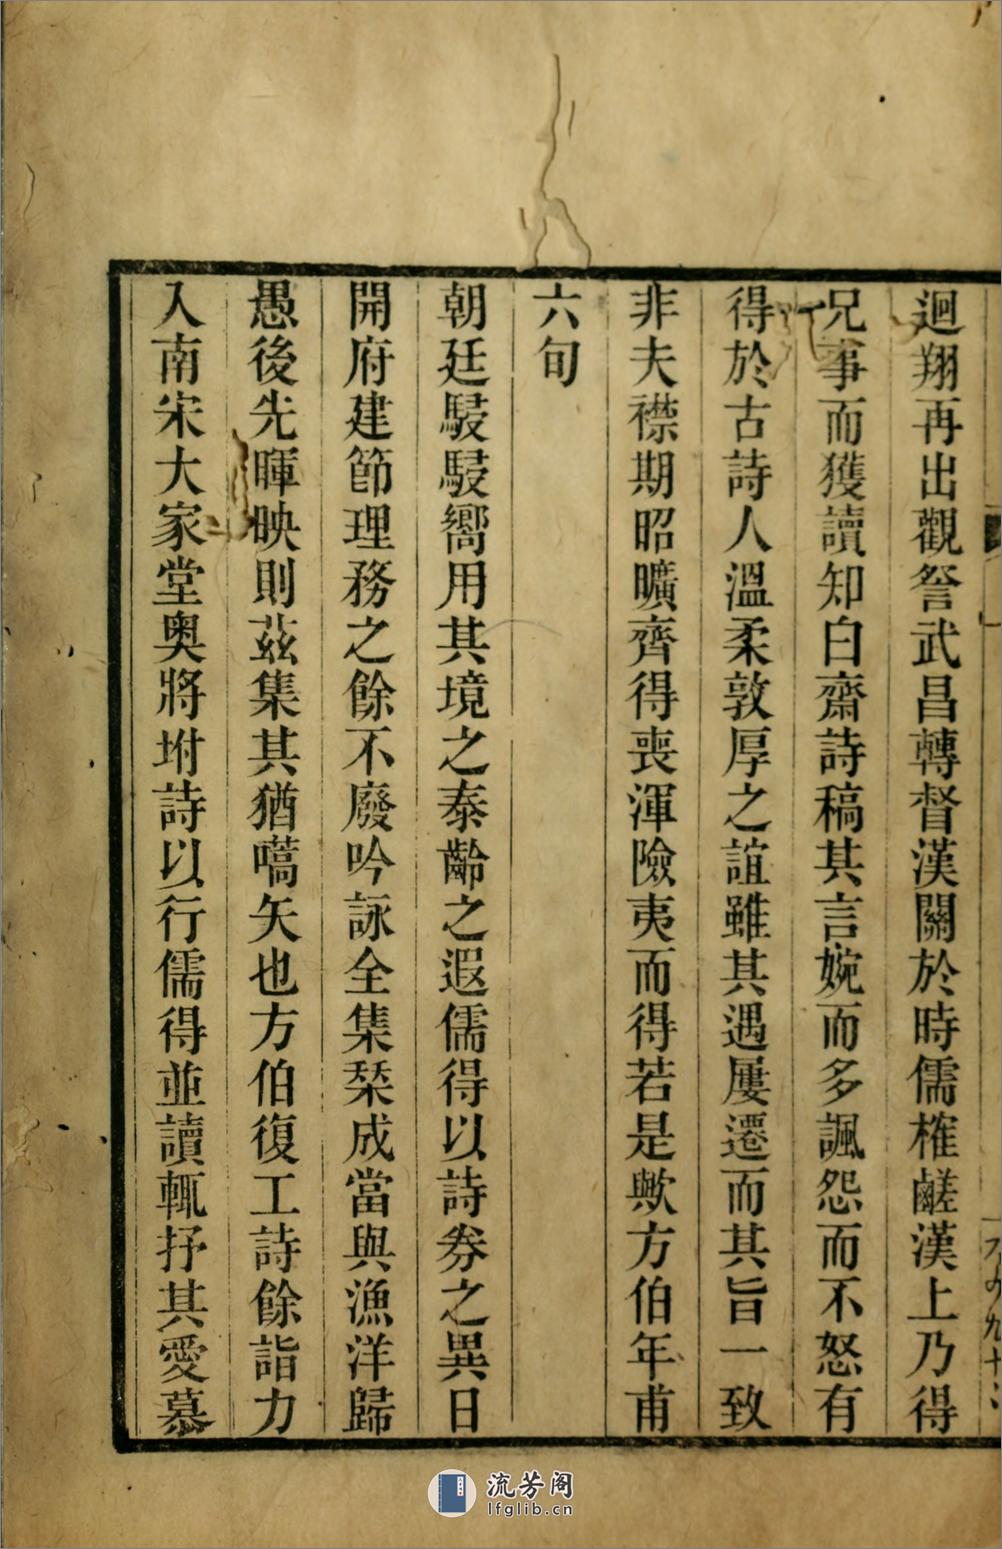 迴翔再出觀詧武昌轉督漢關於時儒榷鹺漢上乃得
兄事而獲讀知白齋詩稿其言婉而多諷怨而不怒有
得於古詩人溫柔敦厚之誼雖其遇屢遷而其旨一致
非夫襟期昭曠齊得喪渾險夷而得若是歟方伯年甫
六旬
朝廷駸駸嚮用其境之泰齡之遐儒得以詩券之異日
開府建節理務之餘不廢吟詠全集琹成當與漁洋歸
愚後先暉映則茲集其猶嚆矢也方伯復工詩餘詣力
入南宋大家堂奧將坿詩以行儒得並讀輒抒其愛慕
流芳阁
lfglib.cn